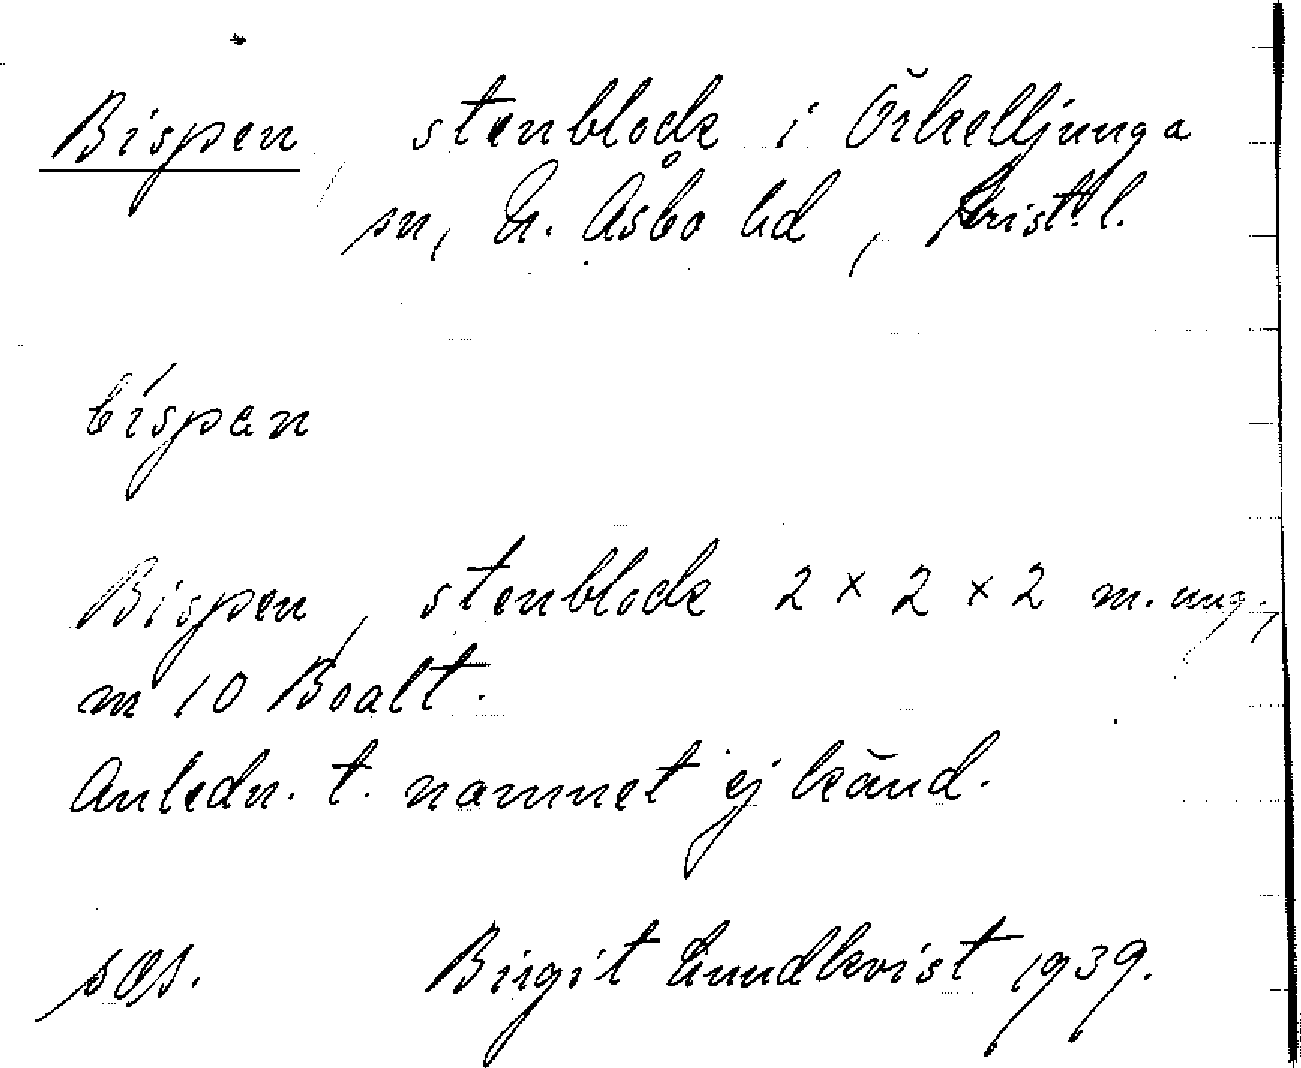 Bispen, stenblock i Örkelljunga
sn, N. Åsbo hd, Krist. l.
bíspan
Bispen, stenblock 2 × 2 × 2 m. ung.,
m 10 Boalt.
Anledn. t. namnet ej känd.
Birgit Lundkvist 1939.